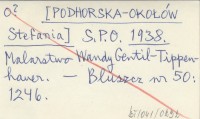 o? [PODHORSKA-OKOŁÓW
Stefania] S.P.O. 1938.
Malarstwo Wandy Gentil-Tippen-
hauer. — Bluszcz nr 50:
1246.